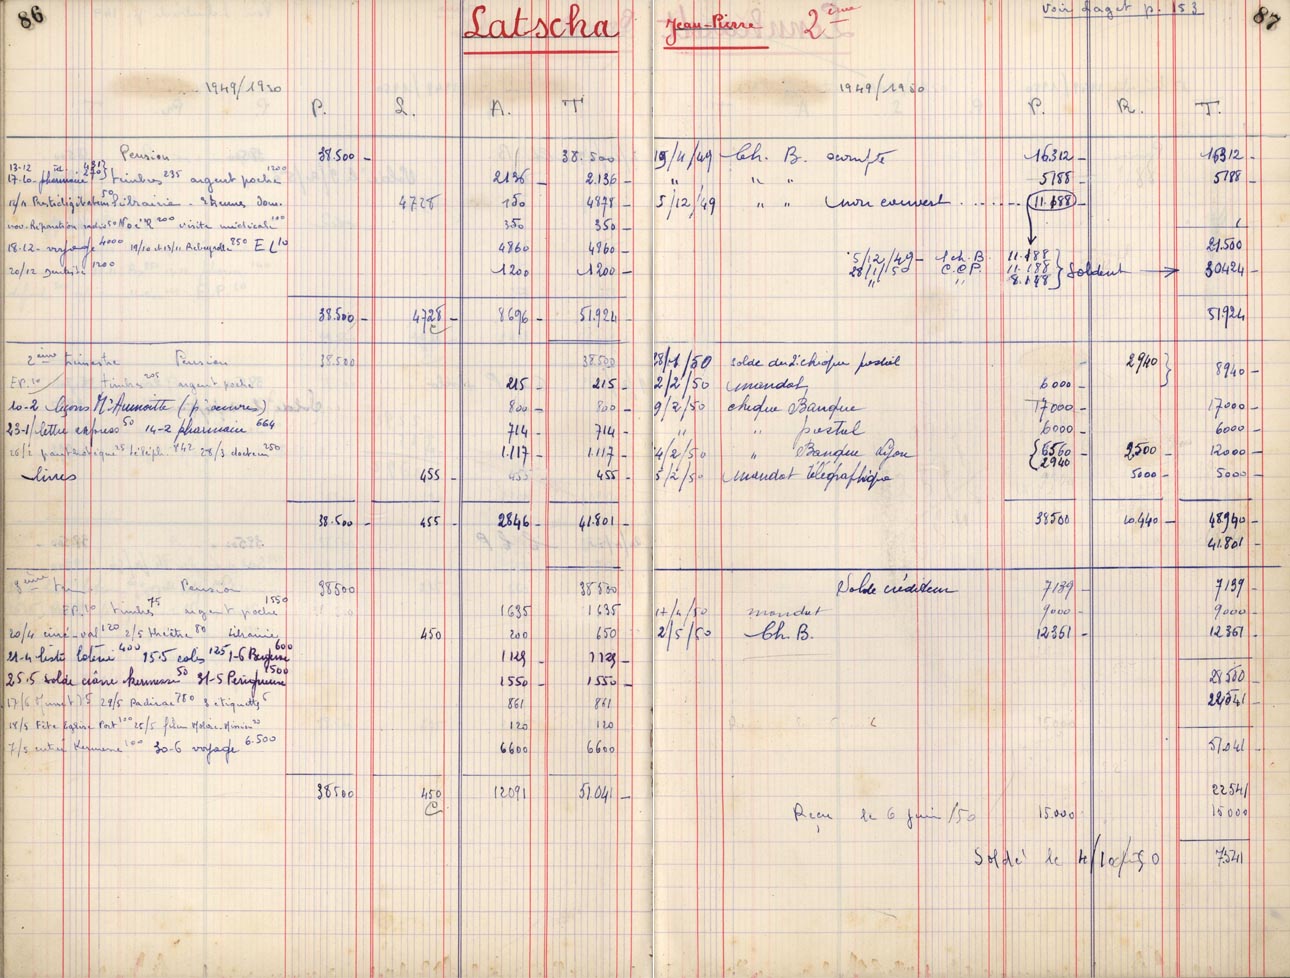 86
Latscha
1949/1950
P. L. A. T
Pension 38.500 - 38.500
13-12
17-10 - pharmacie timbres 235 argent poche 1200 2136 - 2.136 -
Prestidigitation 50 Librairie - 4728 150 4878 -
nov. Réparation radio 50 Noël 200 visite médicale 100 350 350 -
18-12 - voyage 4000 19/10 et 13/11 850 EL 10 4860 4860 -
20/12 Dentiste 1200 1200 1200 -
38.500 - 4728 - 8696 - 51.924
2ème trimestre Pension 38.500 38500
EP. 10 timbres 205 argent poche 215 - 215 -
10-2 leçons Mr (p. oeuvres) 800 - 800 -
23-1/ lettre express 50 14-2 pharmacie 664 714 - 714 -
téléph. 842 28/3 docteur 250 1.117 - 1.117 -
livres 455 455 455 -
38.500 - 455 - 2846 - 41.801 -
3ème trim Pension 38500 38500
EP. 10 timbres 75 argent poche 1550 1635 1635 -
20/4 ciné-val 120 2/5 théâtre 80 librairie 450 200 650 -
400 15.5 colis 125 1-6 600 1129 1129 -
25.5 solde kermesse 50 31-5 1500 1550 - 1550 -
17/6 29/5 Padirac 780 3 étiquettes 6 861 861
Fête Eglise Port 100 25/5 film 20 120 120
Kermesse 100 30-6 voyage 6.500 6600 6600
38500 450 12091 51.041 -
87
Voir Laget p. 153
Jean-Pierre 2ème
1949/1950
P. R. T.
15/4/49 Ch. B. acompte 16.312 - 16312 -
" " " 5188 - 5188 -
5/12/49 " " non couvert ........ 11.188 -
21.500
5/12/49 - 1 ch. B. 11.188
28/1/50 C.C.P. 11.188 } Soldent → 30424 -
" " 8.148
51.924
28/1/50 solde du 2 chèque postal 2940
2/2/50 mandat 6000 - 8940 -
9/2/50 chèque Banque 17000 - 17000 -
" " postal 6000 - 6000 -
4/2/50 " Banque 6560 2500 - 12000 -
2940
5/2/50 mandat télégraphique 5000 - 5000 -
38500 10.440 - 48940 -
41.801 -
Solde créditeur 7139 - 7.139 -
mandat 9000 - 9000 -
2/5/50 Ch. B. 12361 - 12 361 -
28500
22541
51.041
22541
Reçu le 6 juin/50 15.000 15000
Soldé le 4/ 50 7541